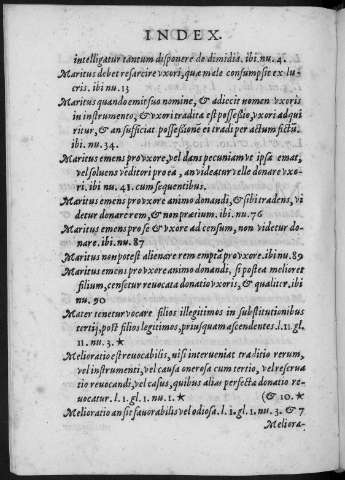 INDEX.
intelligatur tantum disponere de dimidia. ibi nu. 4.
Maritus debet resarcire vxori, quæ male consumpsit ex lu-
cris. ibi nu. 13
Maritus quando emit suo nomine, & adiecit nomen vxoris
in instrumento, & vxori tradita est possessio, vxori adqui
ritur, & an sufficiat possessione ei tradi per actum fictū.
ibi nu. 34.
Maritus emens pro vxore, vel dans pecuniam vt ipsa emat,
vel soluens vēditori pro ea, an videatur velle donare vxo-
ri. ibi nu. 43. cum sequentibus.
Maritus emens pro vxore animo donandi, & sibi tradens, vi
detur donare rem, & non prætium. ibi nu. 76
Maritus emens pro se & vxore ad censum, non videtur do-
nare. ibi nu. 87
Maritus non potest alienare rem emptā pro vxore. ibi nu. 89
Maritus emens pro vxore animo donandi, si postea molioret
filium, censetur reuocata donatio vxoris, & qualiter. ibi
nu. 90
Mater tenetur vocare filios illegitimos in substitutionibus
tertij, post filios legitimos, priusquam ascendentes. l. 11. gl.
11. nu. 3. ★
Melioratio est reuocabilis, nisi interueniat traditio rerum,
vel instrumenti, vel causa onerosa cum tertio, vel reserua
tio reuocandi, vel casus, quibus alias perfecta donatio re-
uocatur. l. 1. gl. 1. nu. 1. ★ (& 10. ★
Melioratio an sit fauorabilis vel odiosa. l. 1. gl. 1. nu. 3. & 7
Meliora-